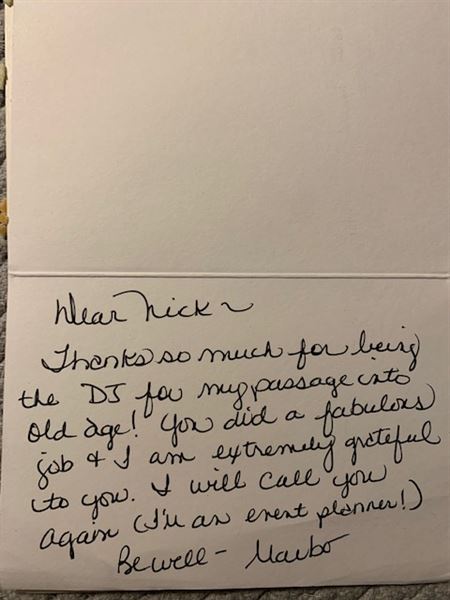 Dear Nick ~
Thanks so much for being
the DJ for my passage into
old age! You did a fabulous
job & I am extremely grateful
to you. I will call you
again (I'm an event planner!)
Be well -